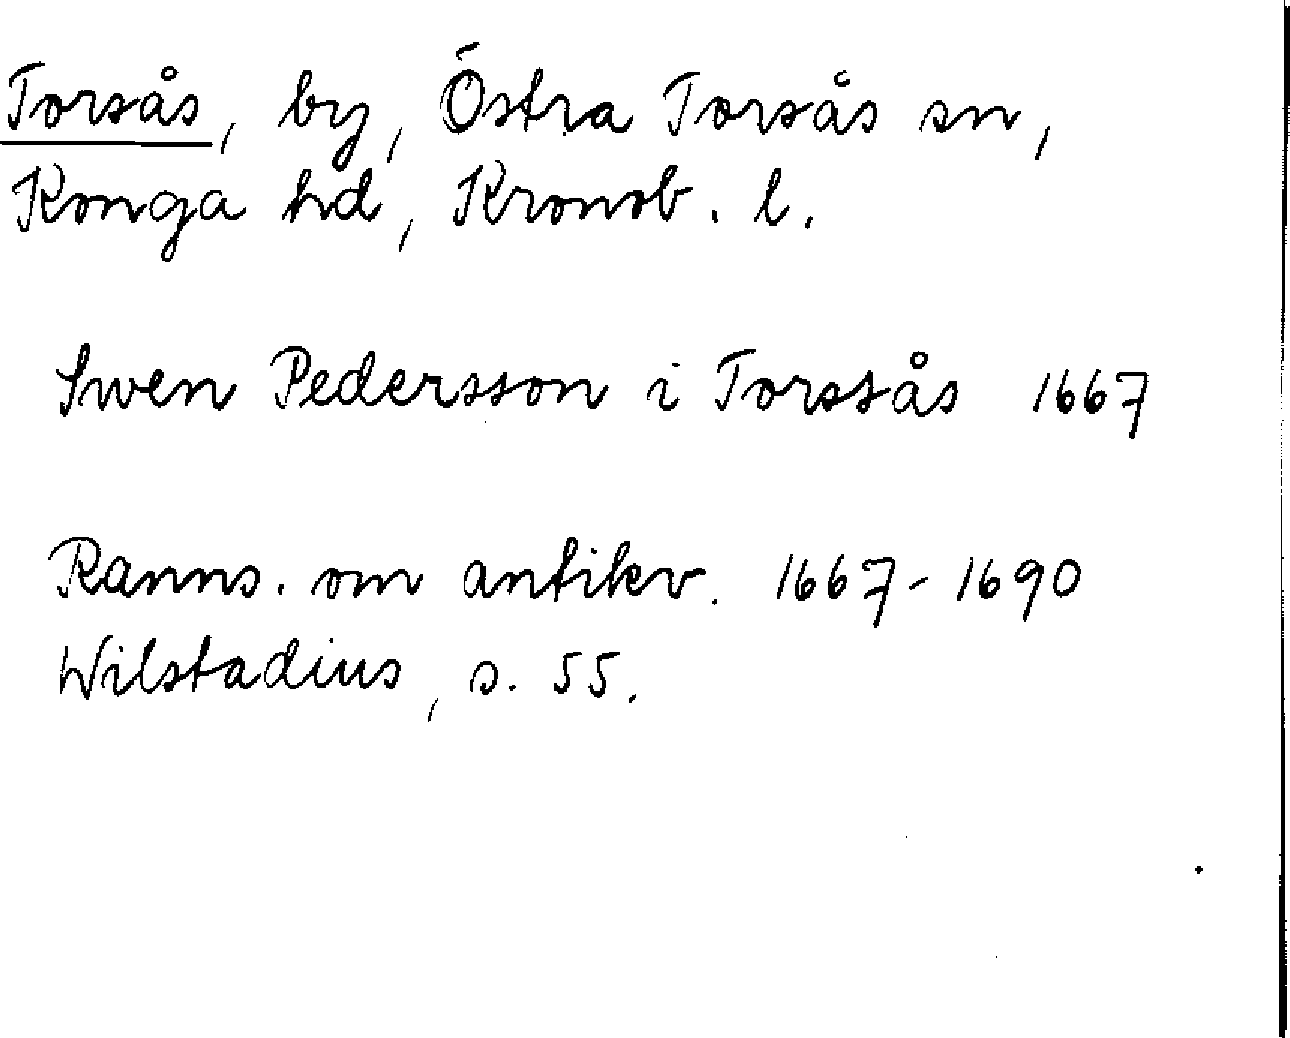 Torsås, by, Östra Torsås sn,
Konga hd, Kronob. l.
Swen Pedersson i Torssås 1667
Ranns. om antikv. 1667-1690
Wilstadius, s. 55.